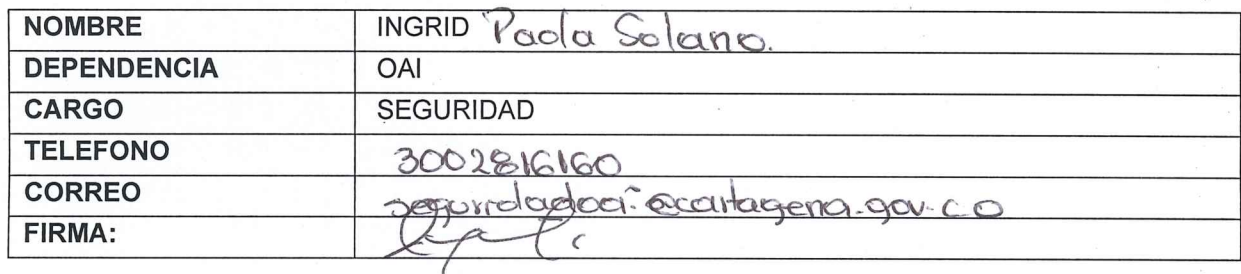 NOMBRE INGRID Paola Solano.
DEPENDENCIA OAI
CARGO SEGURIDAD
TELEFONO 3002816160
CORREO seguridadoai@cartagena.gov.co
FIRMA: